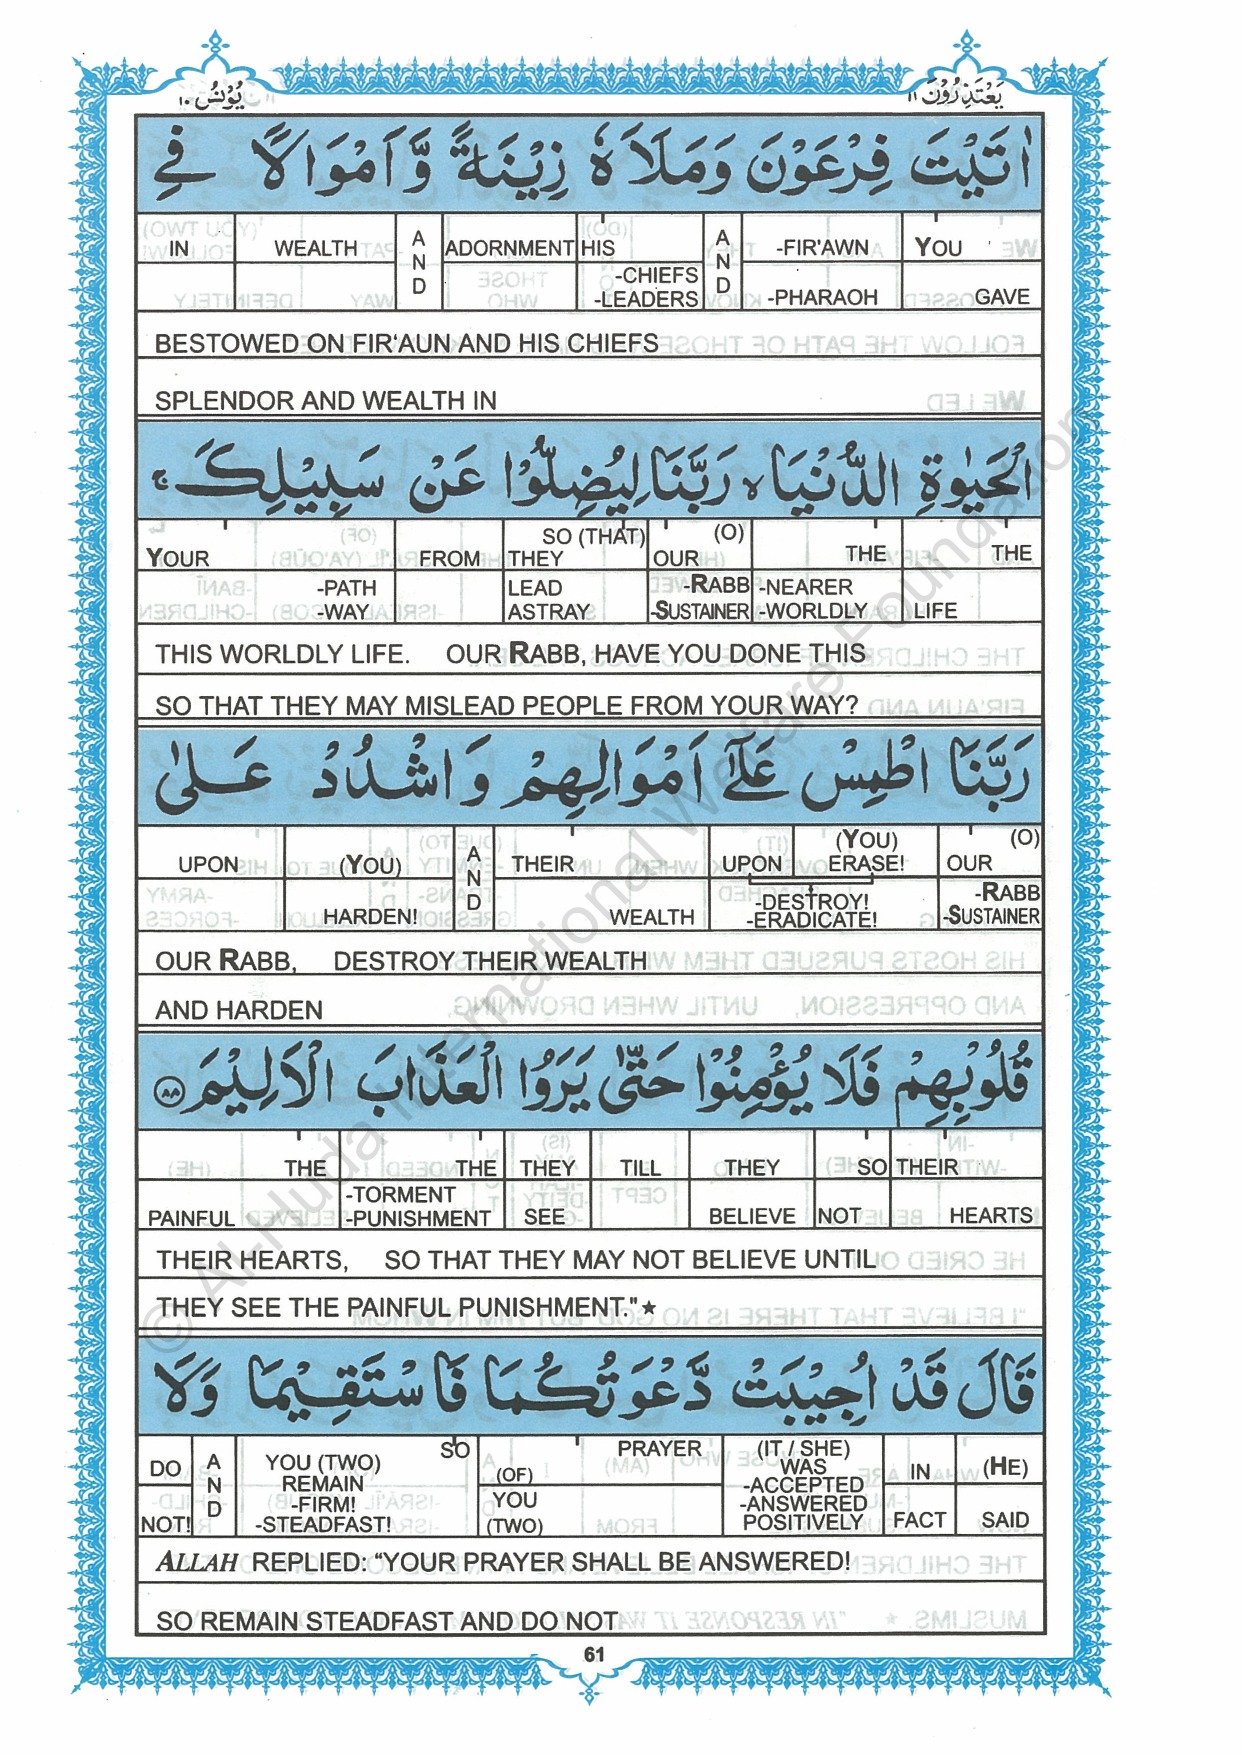 يَعْتَذِرُوْنَ ١١
يُوْنُسُ ١٠
اٰتَيْتَ فِرْعَوْنَ وَمَلَاَهٗ زِيْنَةً وَّاَمْوَالًا فِي
IN WEALTH AND ADORNMENT HIS AND -FIR'AWN YOU
-CHIEFS
-LEADERS -PHARAOH GAVE
BESTOWED ON FIR'AUN AND HIS CHIEFS
SPLENDOR AND WEALTH IN
الْحَيٰوةِ الدُّنْيَا ۙ رَبَّنَا لِيُضِلُّوْا عَنْ سَبِيْلِكَ ۚ
SO (THAT) (O)
YOUR FROM THEY OUR THE THE
-PATH LEAD -RABB -NEARER
-WAY ASTRAY -SUSTAINER -WORLDLY LIFE
THIS WORLDLY LIFE. OUR RABB, HAVE YOU DONE THIS
SO THAT THEY MAY MISLEAD PEOPLE FROM YOUR WAY?
رَبَّنَا اطْمِسْ عَلٰٓى اَمْوَالِهِمْ وَاشْدُدْ عَلٰى
(YOU) (O)
UPON (YOU) AND THEIR UPON ERASE! OUR
-DESTROY! -RABB
HARDEN! WEALTH -ERADICATE! -SUSTAINER
OUR RABB, DESTROY THEIR WEALTH
AND HARDEN
قُلُوْبِهِمْ فَلَا يُؤْمِنُوْا حَتّٰى يَرَوُا الْعَذَابَ الْاَلِيْمَ ٨٨
THE THE THEY TILL THEY SO THEIR
-TORMENT
PAINFUL -PUNISHMENT SEE BELIEVE NOT HEARTS
THEIR HEARTS, SO THAT THEY MAY NOT BELIEVE UNTIL
THEY SEE THE PAINFUL PUNISHMENT."★
قَالَ قَدْ اُجِيْبَتْ دَّعْوَتُكُمَا فَاسْتَقِيْمَا وَلَا
SO PRAYER (IT / SHE)
DO AND YOU (TWO) (OF) WAS IN (HE)
REMAIN -ACCEPTED
NOT! -FIRM! YOU -ANSWERED FACT SAID
-STEADFAST! (TWO) POSITIVELY
ALLAH REPLIED: "YOUR PRAYER SHALL BE ANSWERED!
SO REMAIN STEADFAST AND DO NOT
61
© Al-Huda International Welfare Foundation